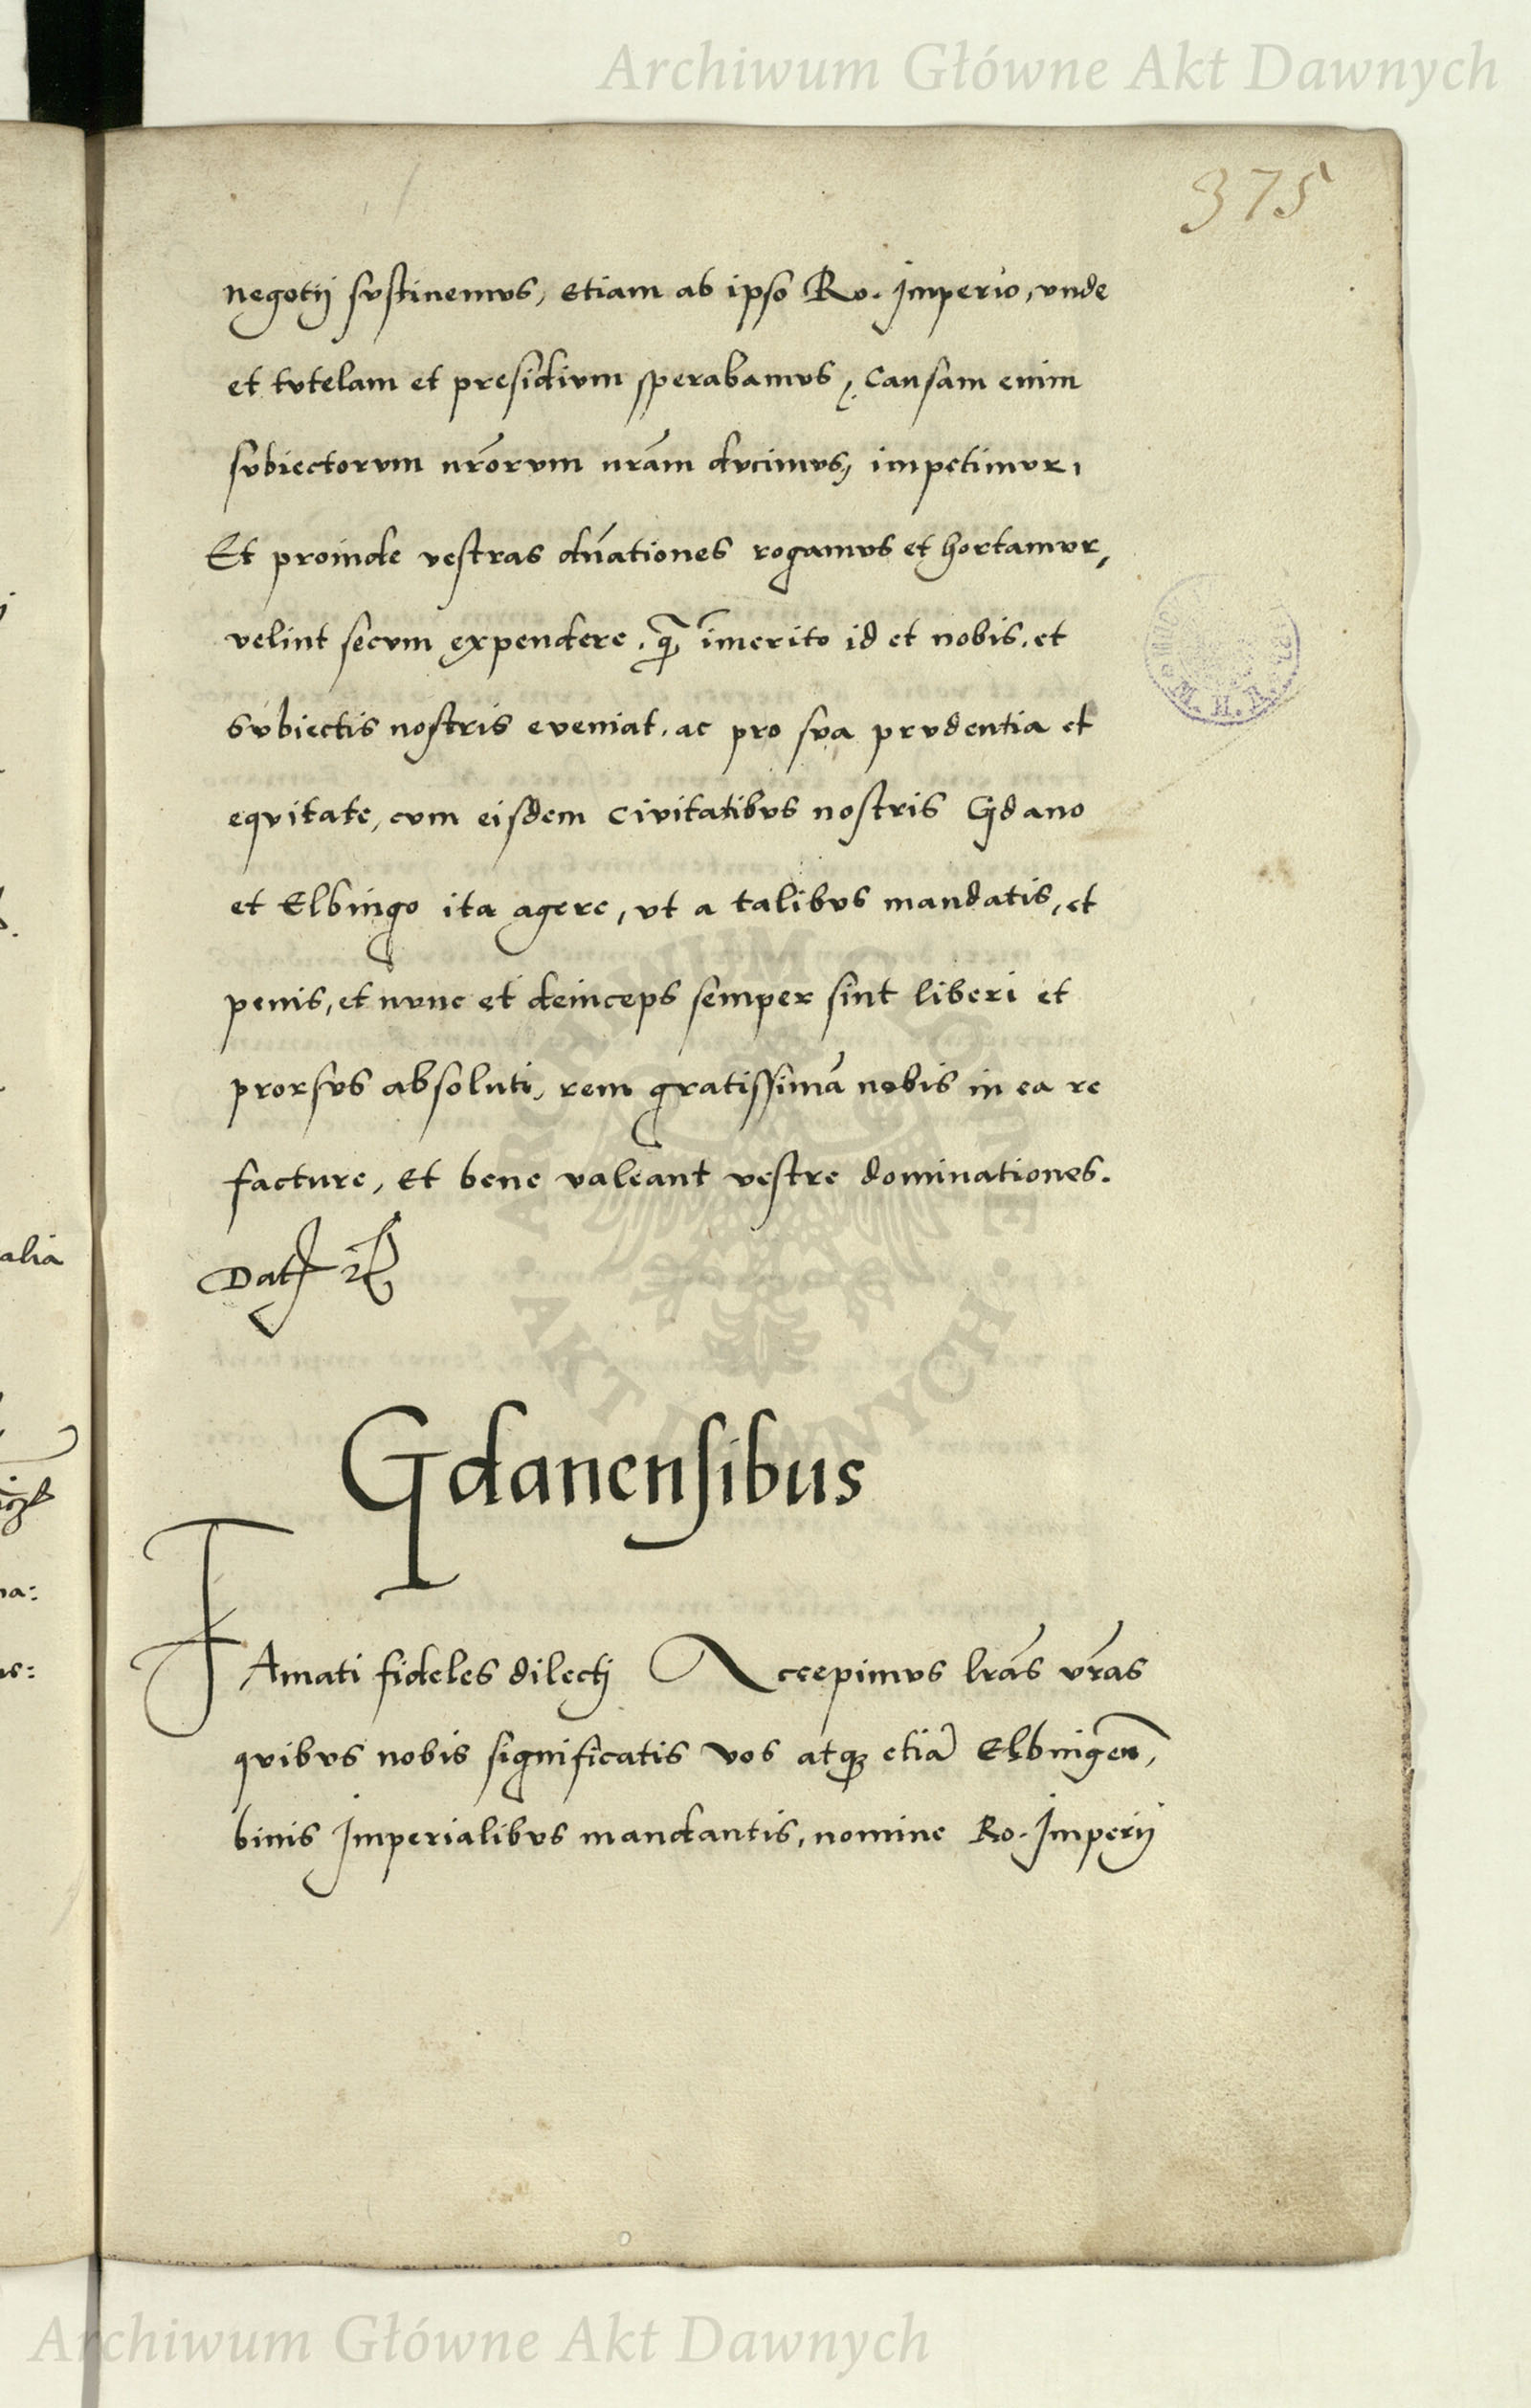 Archiwum Główne Akt Dawnych
375
negotij sustinemus, etiam ab ipso Ro. Imperio, unde
et tutelam et presidium sperabamus, causam enim
subiectorum nr̃orum nr̃am ducimus, impetimur,
Et proinde vestras dñationes rogamus et hortamur,
velint secum expendere, q̃ im̃erito id et nobis, et
subiectis nostris eveniat, ac pro sua prudentia et
equitate, cum eisdem civitatibus nostris Gdano
et Elbingo ita agere, ut a talibus mandatis, et
penis, et nunc et deinceps semper sint liberi et
prorsus absoluti, rem gratissimã nobis in ea re
facture, Et bene valeant vestre dominationes.
Dat
ARCHIWUM GŁÓWNE
AKT DAWNYCH
Gdanensibus
Famati fideles dilecti Accepimus lr̃as vr̃as
quibus nobis significatis vos atq; etiã Elbingeñ,
binis Imperialibus mandantis, nomine Ro. Imperij
alia
na:
us:
Archiwum Główne Akt Dawnych